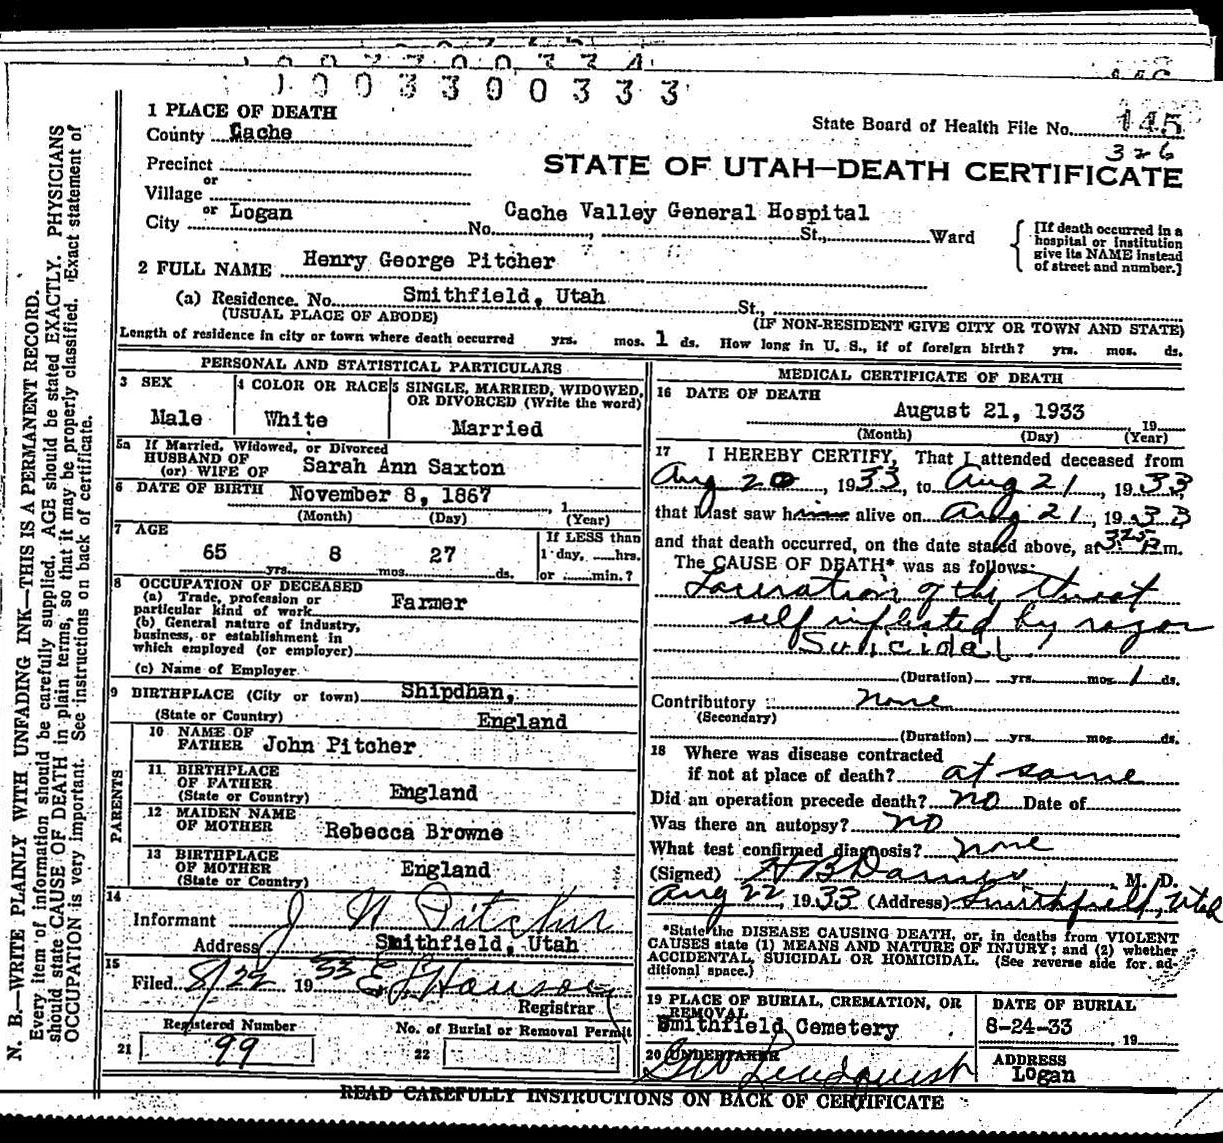 1 0 0 3 3 0 0 3 3 3
1 PLACE OF DEATH
County Cache
State Board of Health File No. 145
326
Precinct
STATE OF UTAH—DEATH CERTIFICATE
or
Village
or
City Logan No. Cache Valley General Hospital St., Ward
[If death occurred in a hospital or institution give its NAME instead of street and number.]
2 FULL NAME Henry George Pitcher
(a) Residence. No. Smithfield, Utah St.,
(USUAL PLACE OF ABODE) (IF NON-RESIDENT GIVE CITY OR TOWN AND STATE)
Length of residence in city or town where death occurred yrs. mos. 1 ds. How long in U. S., if of foreign birth? yrs. mos. ds.
PERSONAL AND STATISTICAL PARTICULARS
3 SEX 4 COLOR OR RACE 5 SINGLE, MARRIED, WIDOWED,
OR DIVORCED (Write the word)
Male White Married
5a If Married, Widowed, or Divorced
HUSBAND OF
(or) WIFE OF Sarah Ann Saxton
6 DATE OF BIRTH November 8, 1867 , 1
(Month) (Day) (Year)
7 AGE If LESS than
65 yrs. 8 mos. 27 ds. 1 day, hrs.
or min.?
8 OCCUPATION OF DECEASED
(a) Trade, profession or
particular kind of work Farmer
(b) General nature of industry,
business, or establishment in
which employed (or employer)
(c) Name of Employer
9 BIRTHPLACE (City or town) Shipdhan,
(State or Country) England
PARENTS
10 NAME OF
FATHER John Pitcher
11 BIRTHPLACE
OF FATHER
(State or Country) England
12 MAIDEN NAME
OF MOTHER Rebecca Browne
13 BIRTHPLACE
OF MOTHER
(State or Country) England
14
Informant J N Pitcher
Address Smithfield, Utah
15
Filed 8/22 19 33 E J Hanson
Registrar
Registered Number No. of Burial or Removal Permit
21 99 22
MEDICAL CERTIFICATE OF DEATH
16 DATE OF DEATH
August 21, 1933 , 19
(Month) (Day) (Year)
17 I HEREBY CERTIFY, That I attended deceased from
Aug 20, 1933, to Aug 21, 1933,
that I last saw him alive on Aug 21, 1933
and that death occurred, on the date stated above, at 3:25 P.m.
The CAUSE OF DEATH* was as follows:
Laceration of the throat
self inflisted by razor
Suicidal
(Duration) yrs. mos. 1 ds.
Contributory none
(Secondary)
(Duration) yrs. mos. ds.
18 Where was disease contracted
if not at place of death? at same
Did an operation precede death? no Date of
Was there an autopsy? no
What test confirmed diagnosis? none
(Signed) , M. D.
Aug 22, 1933 (Address) Smithfield, Utah
*State the DISEASE CAUSING DEATH, or, in deaths from VIOLENT
CAUSES state (1) MEANS AND NATURE OF INJURY; and (2) whether
ACCIDENTAL, SUICIDAL OR HOMICIDAL. (See reverse side for additional space.)
19 PLACE OF BURIAL, CREMATION, OR
REMOVAL
Smithfield Cemetery
DATE OF BURIAL
8-24-33 , 19
20 UNDERTAKER
G W Lindquist
ADDRESS
Logan
READ CAREFULLY INSTRUCTIONS ON BACK OF CERTIFICATE
N. B.—WRITE PLAINLY WITH UNFADING INK—THIS IS A PERMANENT RECORD.
Every item of information should be carefully supplied. AGE should be stated EXACTLY. PHYSICIANS
should state CAUSE OF DEATH in plain terms, so that it may be properly classified. Exact statement of
OCCUPATION is very important. See instructions on back of certificate.